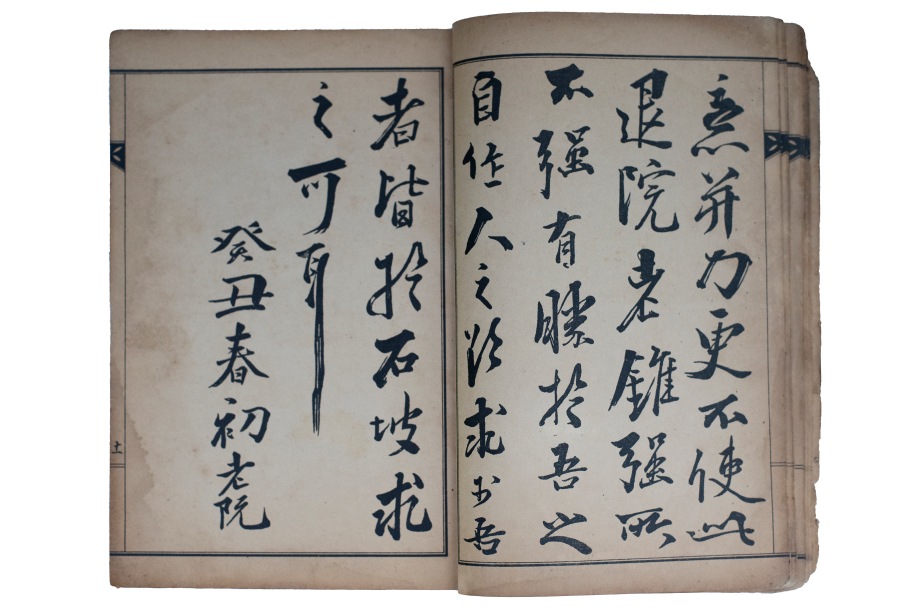 意并力更不使此
退院老錐强所
不强有勝於吾之
自作人之欲求书吾
者皆於石坡求
之可耳
癸丑春初老阮
十一